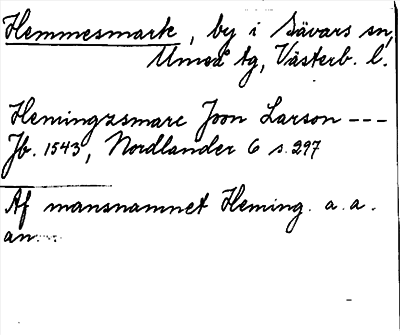 Hemmesmark, by i Sävars sn,
Umeå tg, Västerb. l.
Hemingzmarc Joon Larson ---
Jb. 1543, Nordlander 6 s. 297
Af mansnamnet Heming. a. a.
an.